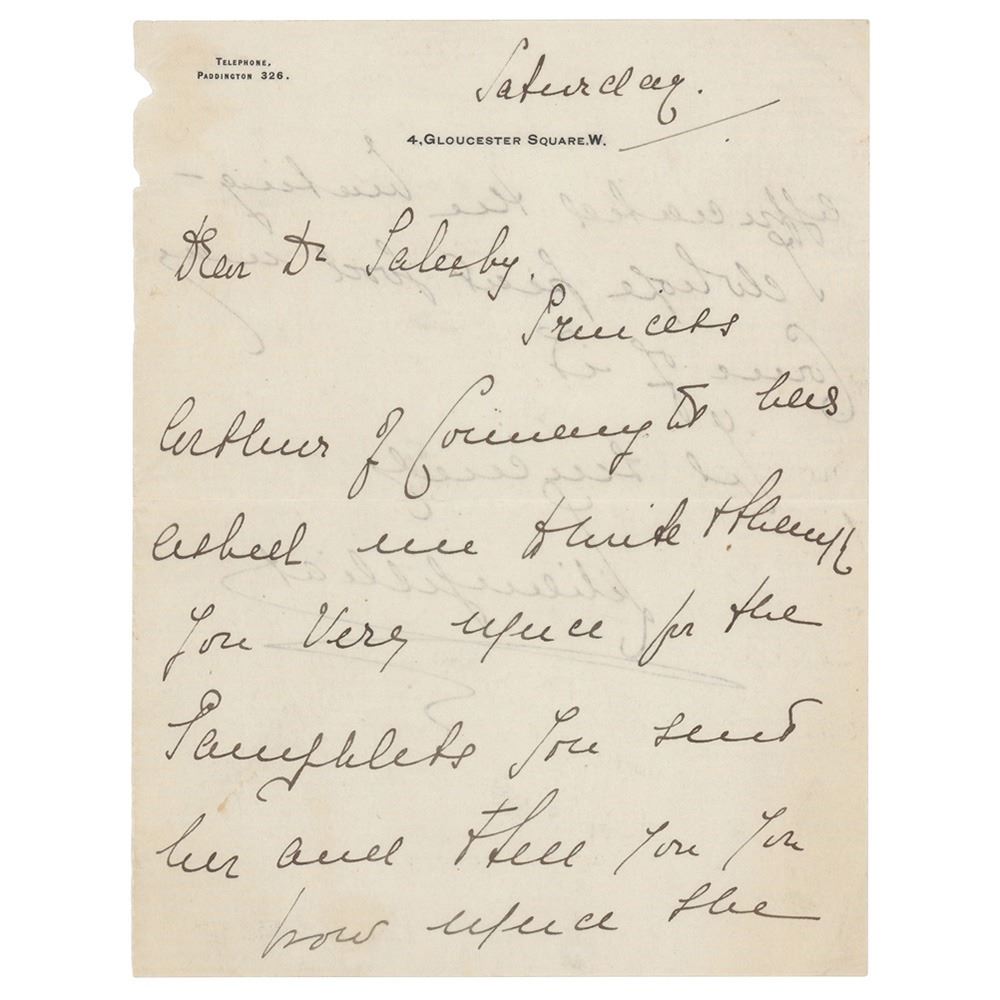 TELEPHONE,
PADDINGTON 326.
Saturday.
4, GLOUCESTER SQUARE. W.
Dear Dr Saleeby,
Princess
Arthur of Connaught has
asked me to write & thank
you very much for the
Pamphlets you sent
her and to tell you you
how much she